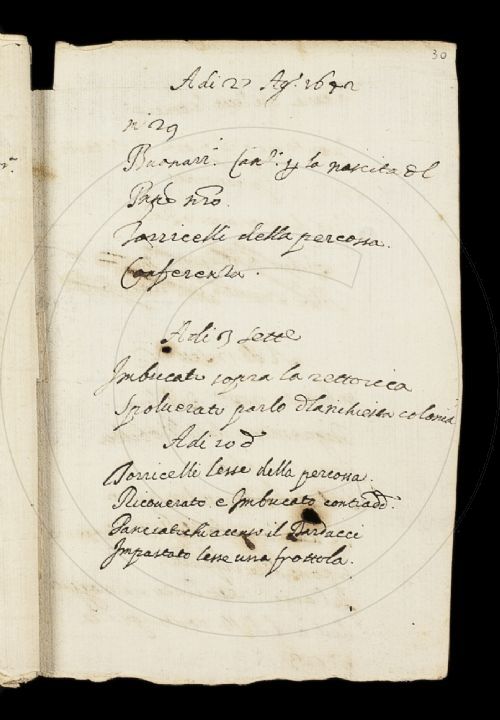 30
A di 27 Ag. 1642
nº 29
Buonarr. Canz. p la nascita del
Pane nro.
Torricelli della percossa.
Conferenza.
A di 3 sette
Imbucato sopra la rettorica
Spoluerato parlo d
A di 10 d
Torricelli lesse della percossa.
Ricouerato e Imbucato contrad.
Panciatichi il
Impastato lesse una frottola.